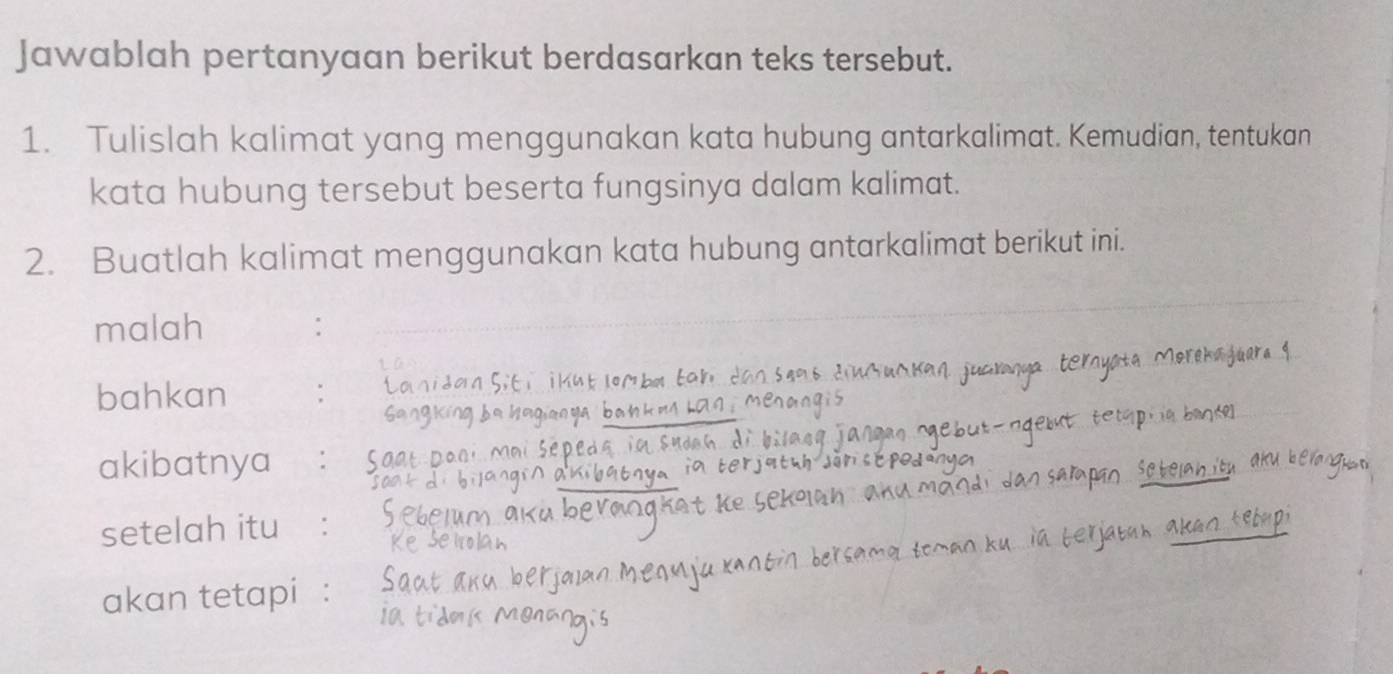 Jawablah pertanyaan berikut berdasarkan teks tersebut.
1. Tulislah kalimat yang menggunakan kata hubung antarkalimat. Kemudian, tentukan
kata hubung tersebut beserta fungsinya dalam kalimat.
2. Buatlah kalimat menggunakan kata hubung antarkalimat berikut ini.
malah :
bahkan : Lanidan Siti ikut lomba tari dan saat diumumkan juaranya ternyata mereka juara 1
sangking bahagianya bahkan Lani menangis
akibatnya : Saat Doni mai sepeda ia sudah di bilang jangan ngebut-ngebut tetapi ia bantel
saat di bilangin akibatnya ia terjatuh dari sepedanya
setelah itu : Sebelum aku berangkat ke sekolah aku mandi dan sarapan setelah itu aku berangkat
ke sekolah
akan tetapi : Saat aku berjalan menuju kantin bersama teman ku ia terjatuh akan tetapi
ia tidak menangis